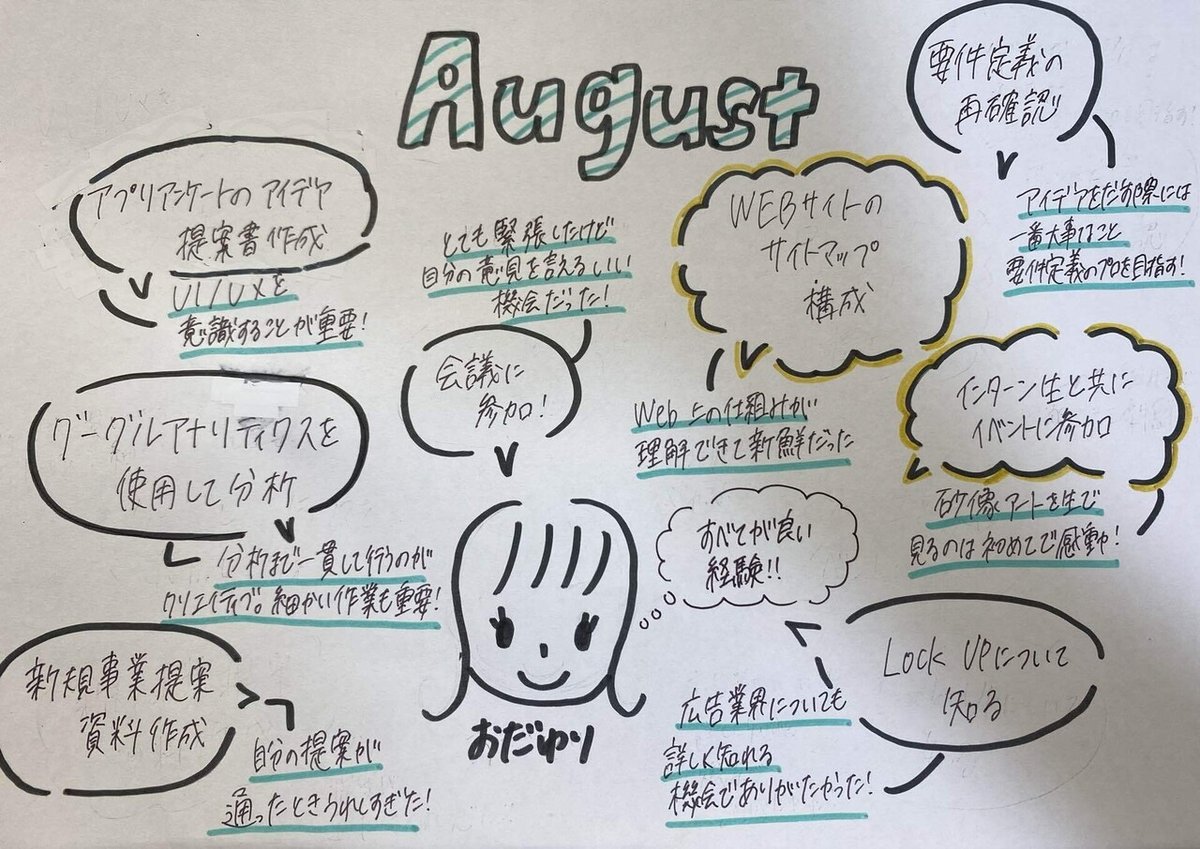 August
要件定義の
再確認!!
アイデアをだす際には
一番大事なこと
要件定義のプロを目指す!
アプリアンケートのアイデア
提案書作成
UI/UXを
意識することが重要!
とても緊張したけど
自分の意見を言えるいい
機会だった!
会議に
参加!
WEBサイトの
サイトマップ
構成
Web上の仕組みが
理解できて新鮮だった
インターン生と共に
イベントに参加
砂像アートを生で
見るのは初めてで感動!
グーグルアナリティクスを
使用して分析
分析まで一貫して行うのが
クリエイティブ。細かい作業も重要!
すべてが良い
経験!!
新規事業提案
資料作成
自分の提案が
通ったときうれしすぎた!
おだゆり
Lock UPについて
知る
広告業界についても
詳しく知れる
機会でありがたかった!